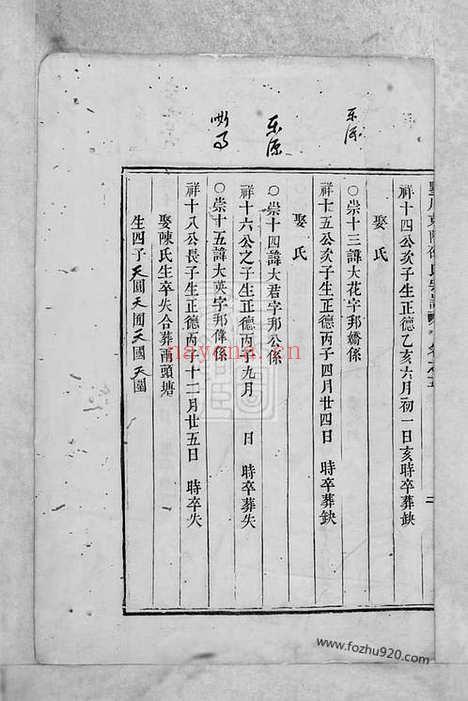 祥十四公次子生正德乙亥六月初一日亥時卒葬缺
娶 氏
○崇十三諱大花字邦嬌係
祥十五公次子生正德丙子四月廿四日 時卒葬缺
娶 氏
○崇十四諱大君字邦公係
祥十六公之子生正德丙子九月 日 時卒葬失
○崇十五諱大英字邦偉係
祥十八公長子生正德丙子十二月廿五日 時卒失
娶陳氏生卒失合葬雨頭塘
生四子天圓天閏天國天園
nayona.cn
www.fozhu920.com